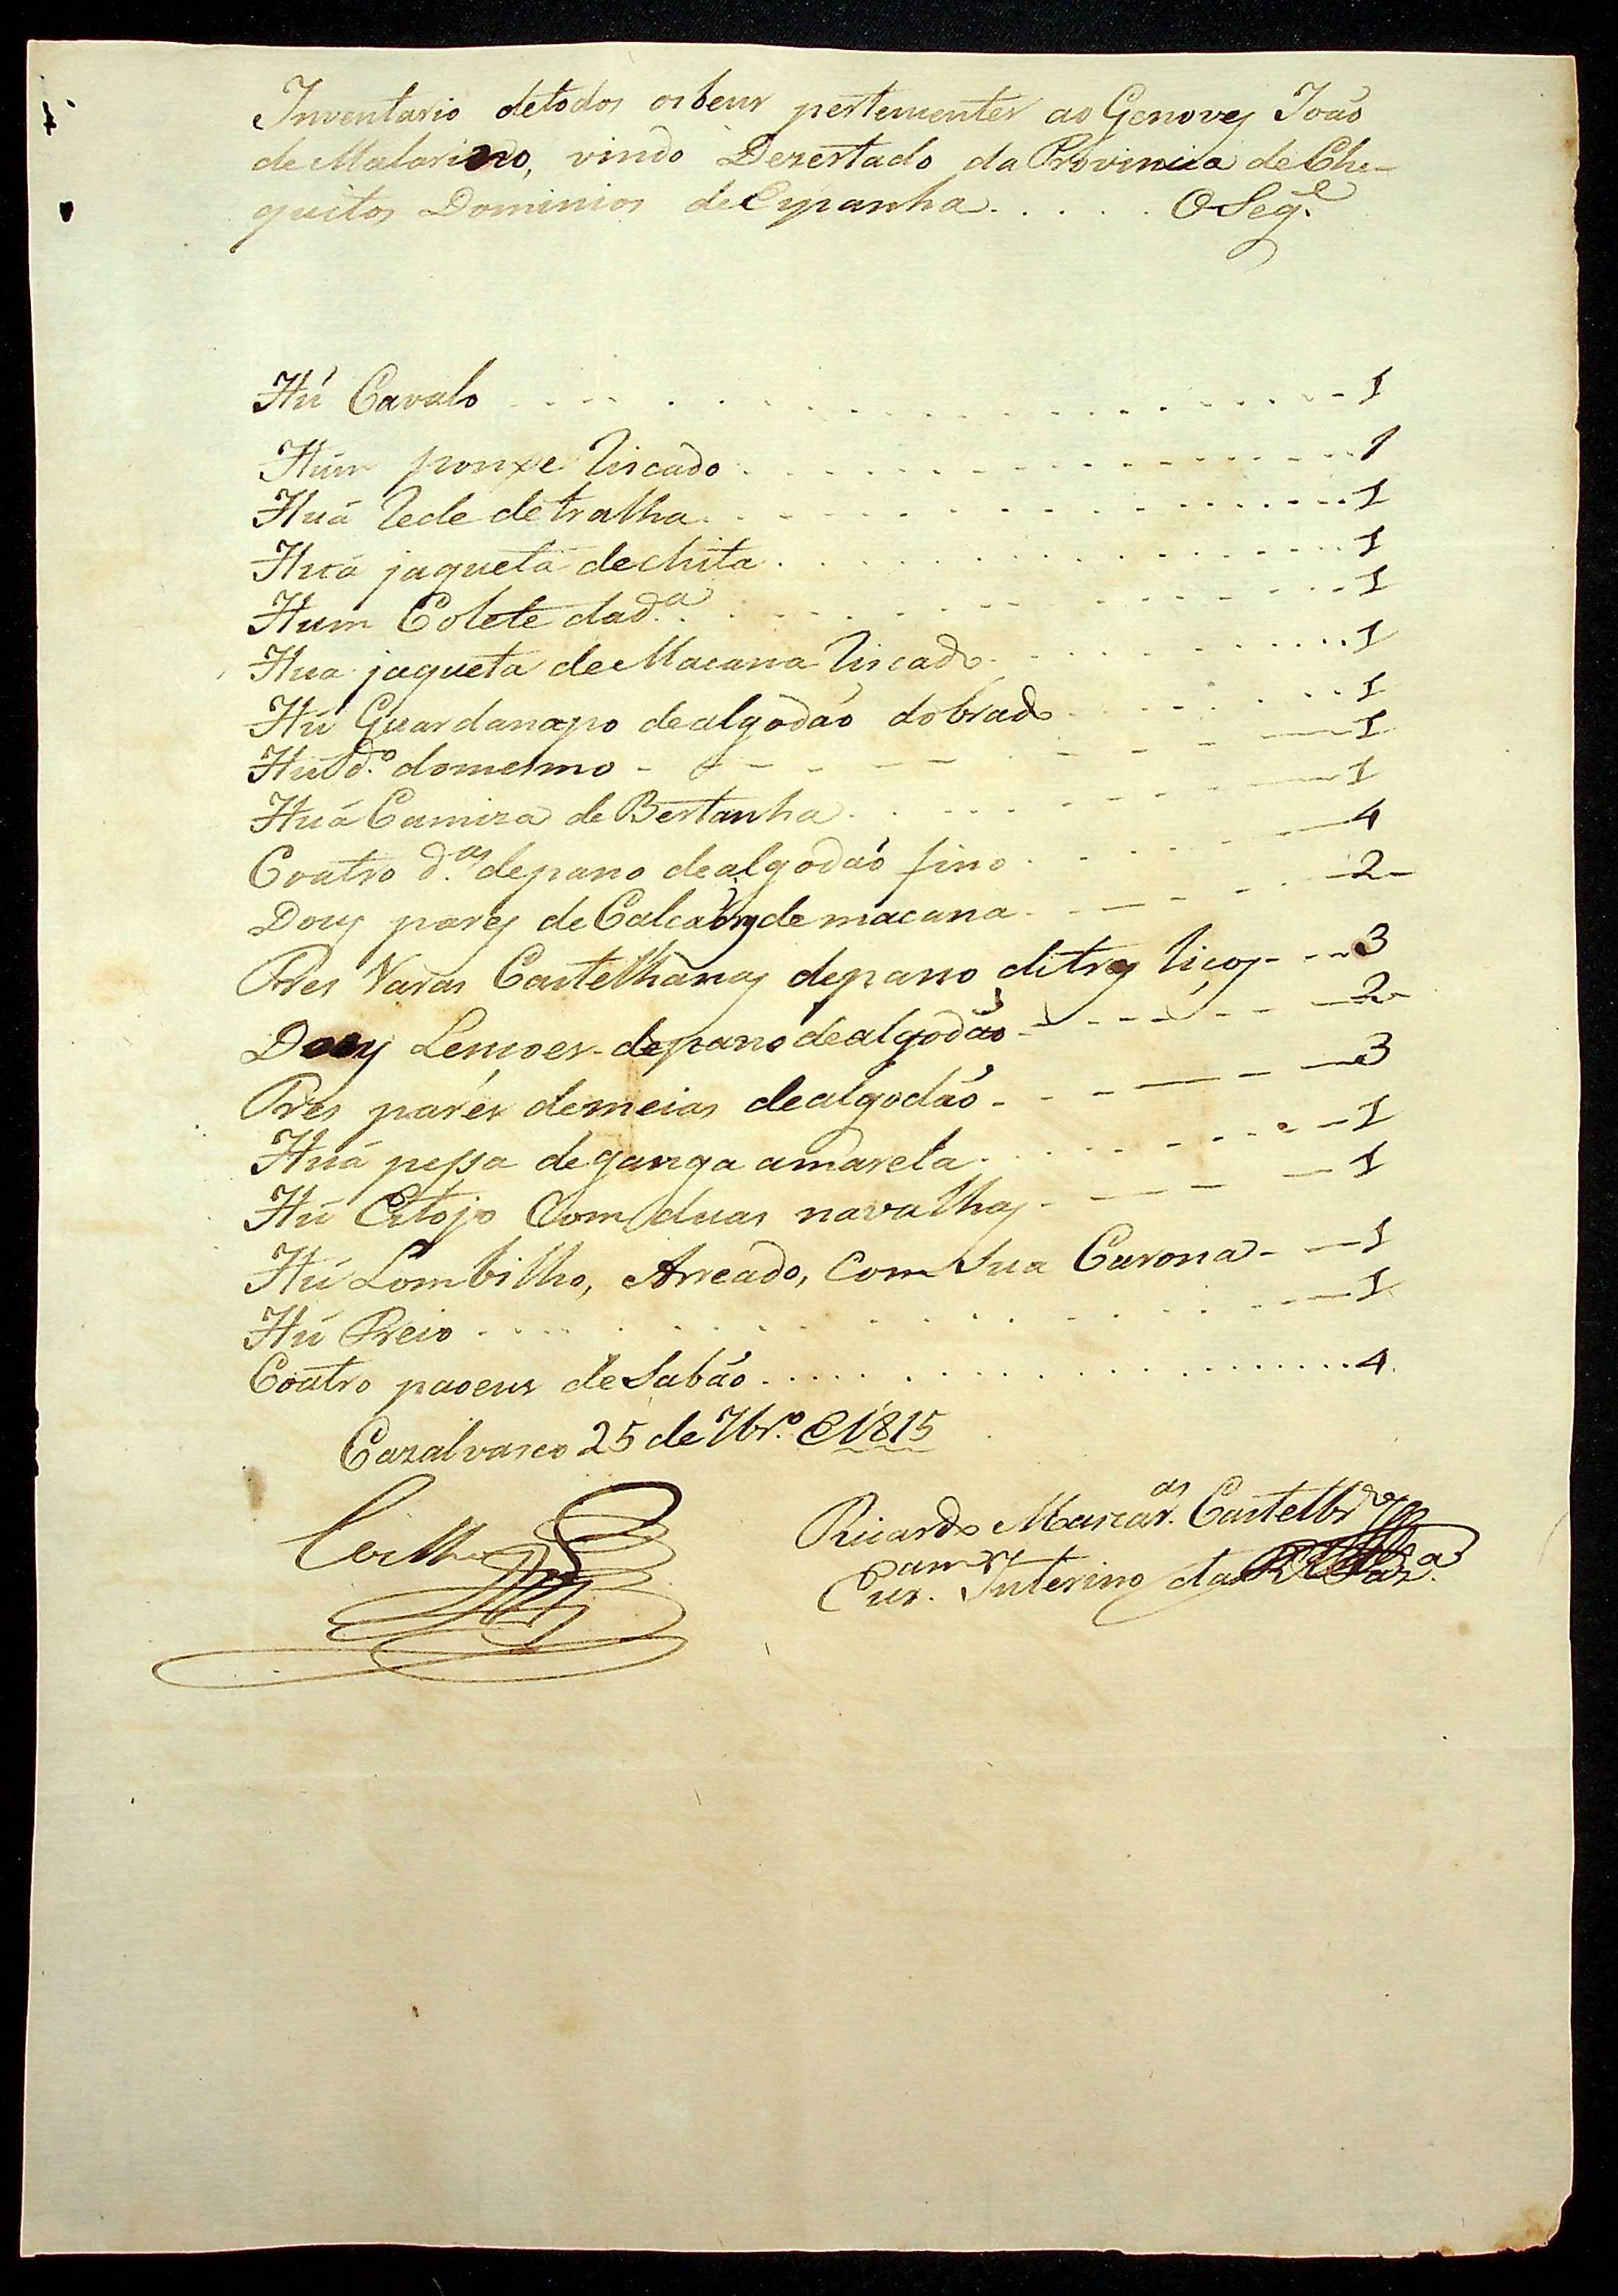 Inventario detodos osbens pertencentes ao Genovez João
de Malarino, vindo Dezertado da Provincia de Che-
quitos Dominios de Espanha. . . . . O Seg.e
Hú Cavalo 1
Hum ponxe riscado 1
Huã rede detralha 1
Huã jaqueta dechita 1
Hum Colete dad.a 1
Hua jaqueta de Macana riscado 1
Hú Guardanapo dealgodão dobrado 1
Hú d.o domesmo 1
Huã Camiza de Bertanha 1
Coatro d.as depano dealgodão fino 4
Dous pares de Calcaons de macana 2
Tres Varas Castelhanas depano ditres liços 3
Dous Lençoes depano dealgodão 2
Tres parés demeias dealgodão 3
Huã pessa deganga amarela 1
Hú Estojo Com duas navalhas 1
Hú Lombilho, Arreado, Com Sua Carona 1
Hú Freio 1
Coatro paoens de Sabão 4
Cazalvasco 25 de 7br.o de 1815
Coelho
Ricardo Mascar.as Castelbr.
Interino da R. Faz.a